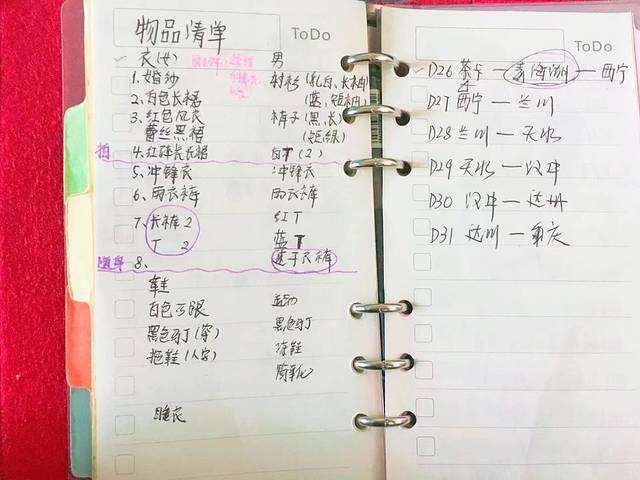 物品清单
ToDo
✓ 衣(女) 男
1.婚纱 衬衫(乳白、长袖)
2.白色长裙 (蓝、短袖)
3.红色风衣 裤子(黑、长)
蕾丝黑裙 (短绿)
拍 4.红碎花长裙 白T(2)
5.冲锋衣 冲锋衣
6.雨衣裤 雨衣裤
7.长裤 2 红T
T 2 蓝T
8. 速干衣裤
鞋
白色 运动
黑色马丁(穿) 黑色马丁
拖鞋(人字) 凉鞋
睡衣
ToDo
✓ D26 茶卡—青海湖—西宁
D27 西宁—兰州
D28 兰州—天水
D29 天水—汉中
D30 汉中—达州
D31 达州—重庆